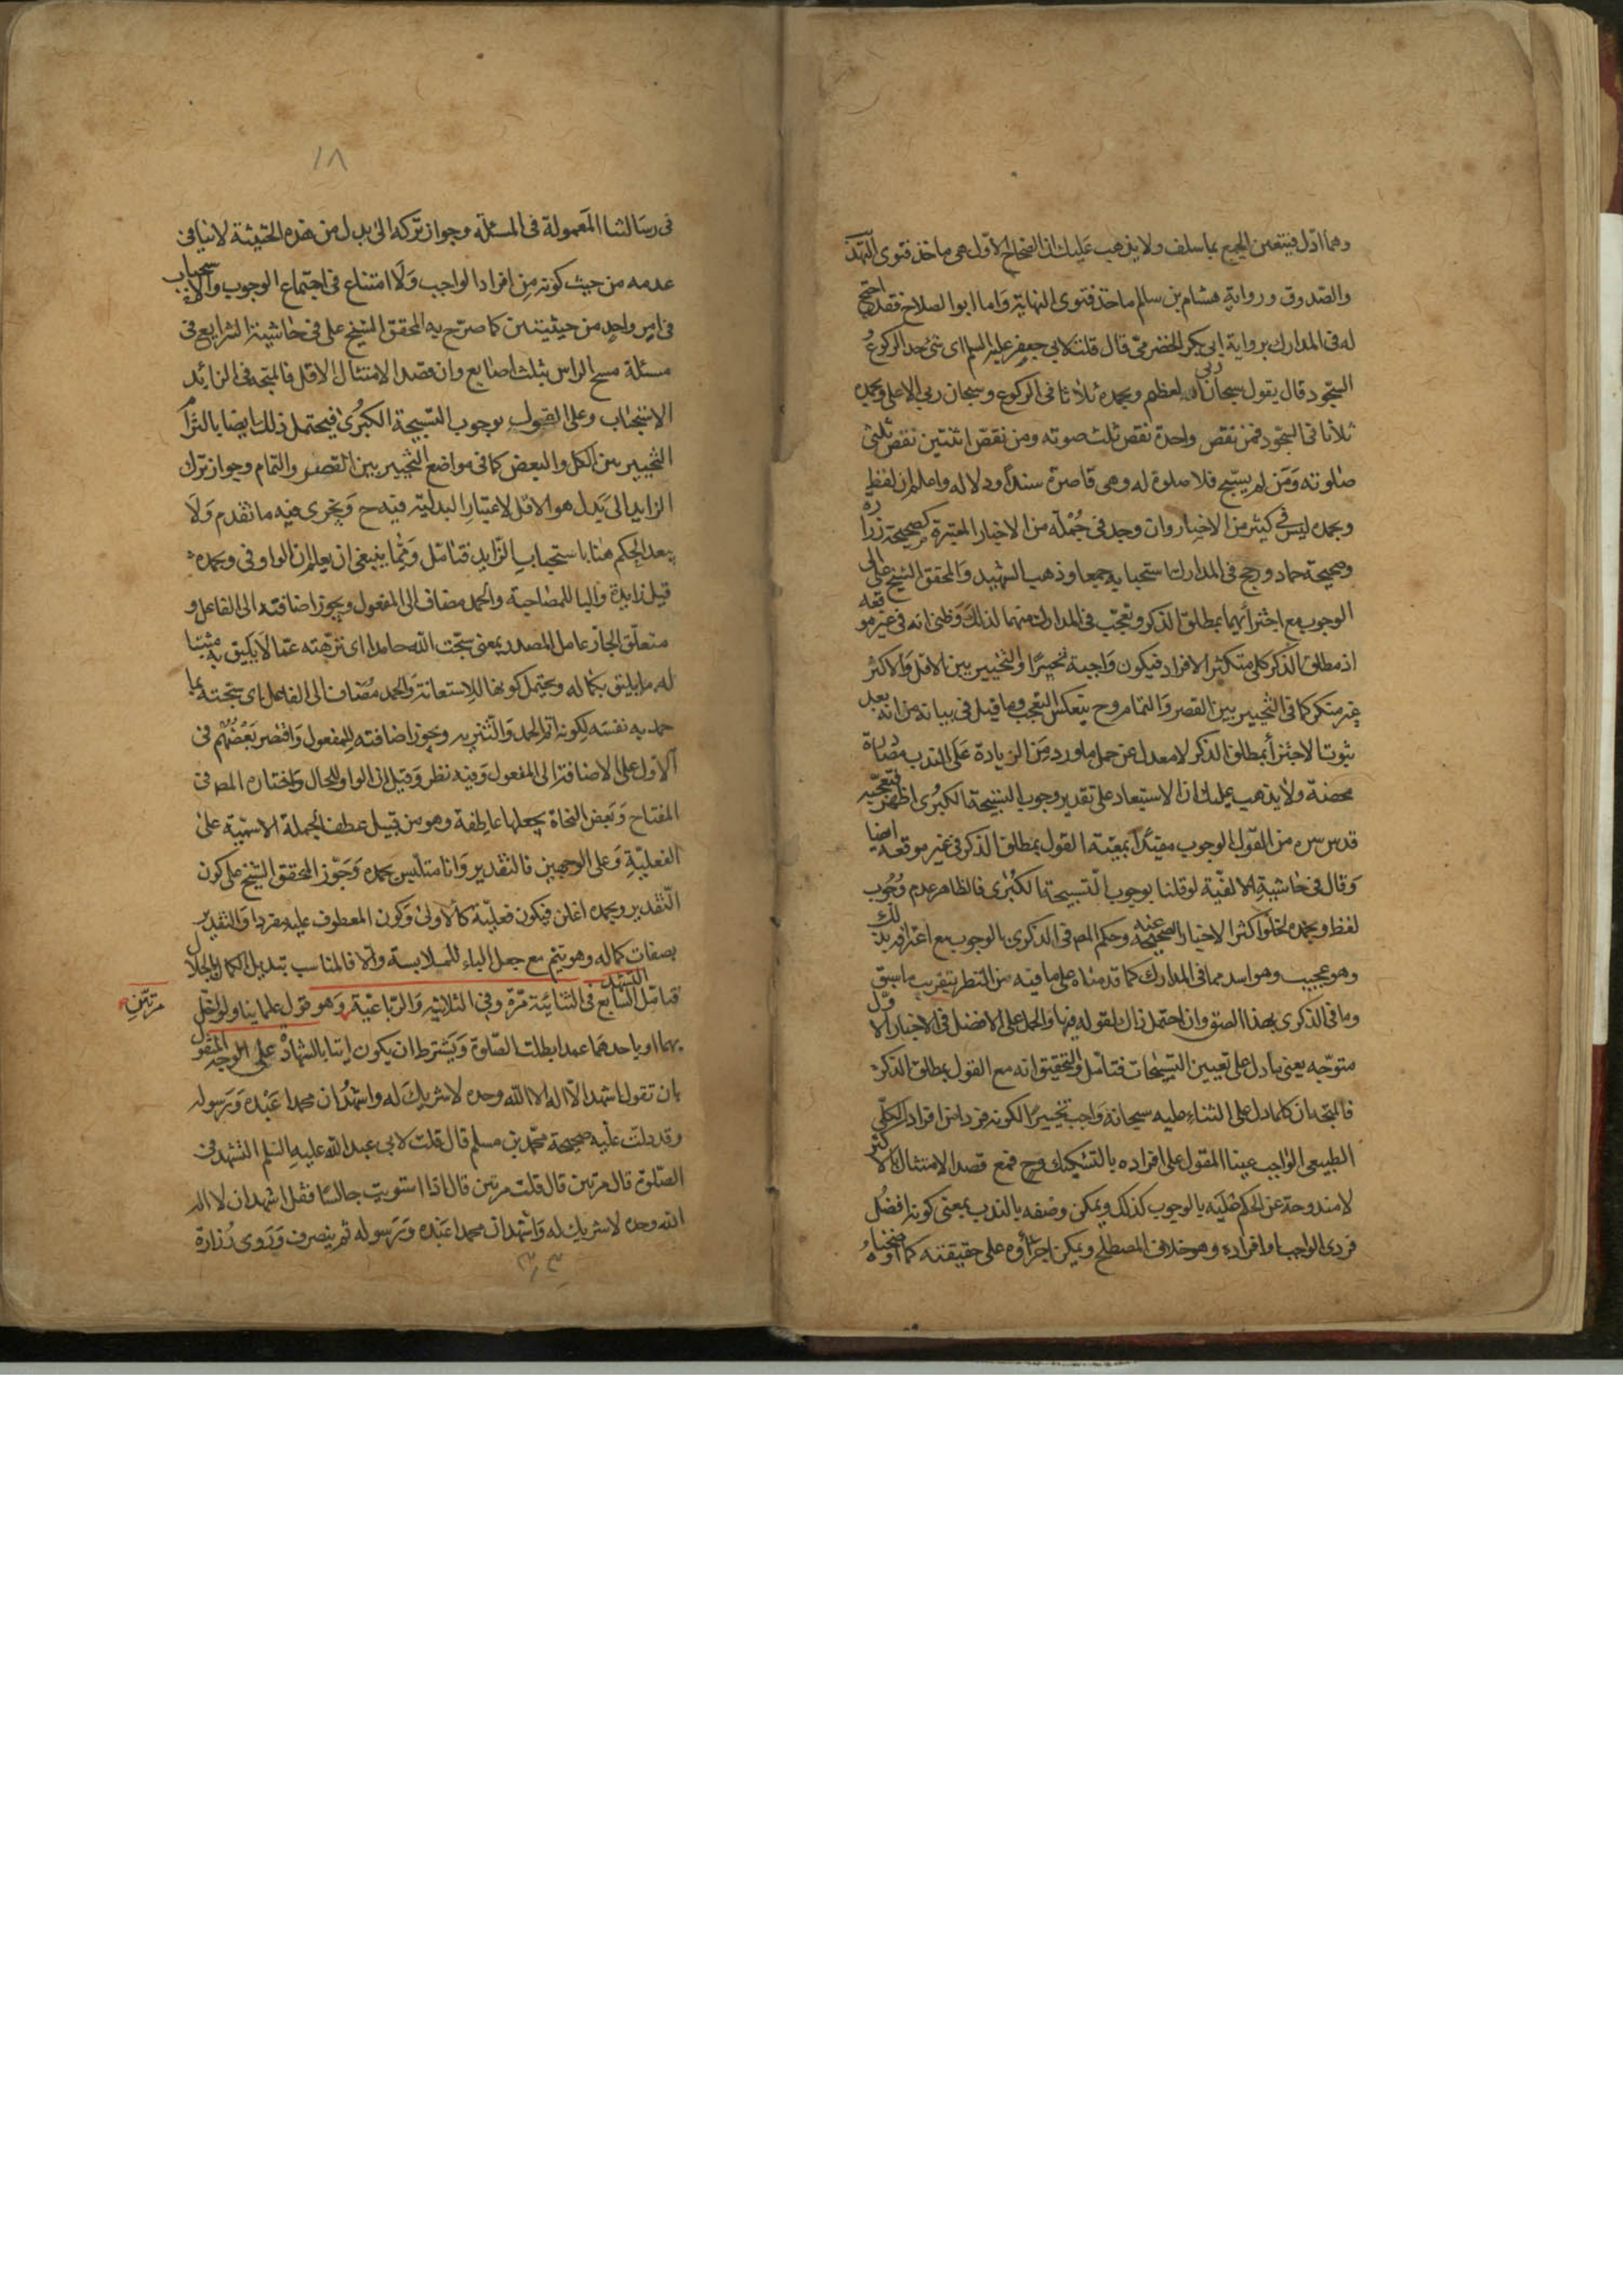 وهما ادل فيتعين الجمع بما سلف ولا يذهب عليك ان الصحاح الاول هى ماخذ فتوى التهذ
والصدوق ورواية هشام بن سالم ماخذ فتوى النهاية واما ابو الصلاح فقد احتج
له فى المدارك برواية ابى بكر الحضرمى قال قلت لابي جعفر عليه السلم اى شئ حد الركوع
السجود قال يقول سبحان ربى العظيم وبحمده ثلاثا فى الركوع وسبحان ربي الاعلى وبحمده
ثلاثا فى السجود فمن نقص واحدة نقص ثلث صوته ومن نقص اثنتين نقص ثلثى
صلوته ومن لم يسبح فلا صلوة له وهى قاصرة سندا ودلاله واعلم ان لفظ
وبحمده ليس فى كثير من الاخبار وان وجد فى جملة من الاخبار المعتبرة كصحيحة زراره
وصحيحة حماد ورجح فى المدارك استحبابه جمعا وذهب الشهيد والمحقق الشيخ على الى
الوجوب مع اجتزائهما بمطلق الذكر وتعجب فى المدارك منهما لذلك وظنى انه فى غير موقعه
اذ مطلق الذكر كلى متكثر الافراد فيكون واجبة تخييرا والتخيير بين الاقل والاكثر
غير متكر كما فى التخيير بين القصر والتمام وح ينعكس التعجب وما قيل فى بيانه من انه بعد
ثبوت الاجتزأ بمطلق الذكر لا معدل عن حمل ما ورد من الزيادة على الندب مصادرة
محضة ولا يذهب عليك ان الاستبعاد على تقدير وجوب التسبيحة الكبرى اظهر فتعجبه
قدس سره من القول بالوجوب مقيدا بمعية القول بمطلق الذكر فى غير موقعه ايضا
وقال فى حاشية الالفية لو قلنا بوجوب التسبيحة الكبرى فالظاهر عدم وجوب
لفظ وبحمده لخلو اكثر الاخبار الصحيحة عنه وحكم المص فى الذكرى بالوجوب مع اعترافه بذلك
وهو عجيب وهو اسد مما فى المدارك كما قدمناه على ما فيه من النظر بتقريب ما سبق
وما فى الذكرى بهذا الصق وان احتمل ذاك لقوله فيها والحمل على الافضل فى الاخبار الاول
متوجه يعنى ما دل على تعيين التسبيحات فتامل والتحقيق انه مع القول بمطلق الذكر
فالمتجه ان كلما دل على الثناء عليه سبحانه واجب تخييرا لكونه فردا من افراد الكلى
الطبيعى الواجب عينا المقول على افراده بالتشكيك وح فمع قصد الامتثال بالاكثر
لا مندوحة عن الحكم عليه بالوجوب كذلك ويمكن وصفه بالندب بمعنى كونه افضل
فردى الواجب او افراده وهو خلاف المصطلح ويمكن اجراؤه على حقيقته كما اوضحناه
١٨
فى رسالتنا المعمولة فى المسئلة وجواز تركه الى بدل من هذه الحيثية لا ينافى
عدمه من حيث كونه من افراد الواجب ولا امتناع فى اجتماع الوجوب والاستحباب
فى امر واحد من حيثيتين كما صرح به المحقق الشيخ على فى حاشية الشرايع فى
مسئلة مسح الراس بثلث اصابع وان قصد الامتثال الاقل فالمتجه فى الزايد
الاستحباب وعلى القول بوجوب التسبيحة الكبرى فيحتمل ذلك ايضا بالتزام
التخيير بين الكل والبعض كما فى مواضع التخيير بين القصر والتمام وجواز ترك
الزايد الى بدل هو الاقل لاعتبار البدلية فيه ح ويجرى فيه ما تقدم ولا
يبعد الحكم هنا باستحباب الزايد فتامل ومما ينبغى ان يعلم ان الواو فى وبحمده
قيل زايدة والبا للمصاحبة والحمد مضاف الى المفعول ويجوز اضافته الى الفاعل و
متعلق الجار عامل المصدر بمعنى سبحت الله حامدا اى نزهته عما لا يليق به مثبتا
له ما يليق بكماله ويحتمل كونها للاستعانة والحمد مضاف الى الفاعل اى سبحته بما
حمد به نفسه لكونه اتم الحمد والتنزيه ويجوز اضافته للمفعول واقتصر بعضهم فى
الاول على الاضافة الى المفعول وفيه نظر وقيل ان الواو للحال واختاره المص فى
المفتاح وبعض النحاة يجعلها عاطفة وهو من قبيل عطف الجملة الاسمية على
الفعلية وعلى الوجهين فالتقدير وانا متلبس بحمده وجوز المحقق الشيخ على كون
التقدير وبحمده اعلن فيكون فعلية كالاولى وكون المعطوف عليه مفردا والتقدير
بصفات كماله وهو يتم مع جعل الباء للملابسة والا فالمناسب تبديل الكمال بالجلال
فتامل السابع التشهد فى الثنائية مرة وفى الثلاثية والرباعية وهو قول علماينا ولو اخل
مرتين
بهما او باحدهما عمدا بطلت الصلوة ويشترط ان يكون اتيا بالشهادة على الوجه المنقول
بان تقول اشهد ان لا اله الا الله وحده لا شريك له واشهد ان محمدا عبده ورسوله
وقد دلت عليه صحيحة محمد بن مسلم قال قلت لابى عبد الله عليه السلم التشهد فى
الصلوة قال مرتين قال قلت مرتين قال اذا استويت جالسا فقل اشهد ان لا اله الا
الله وحده لا شريك له واشهد ان محمدا عبده ورسوله ثم ينصرف وروى زرارة